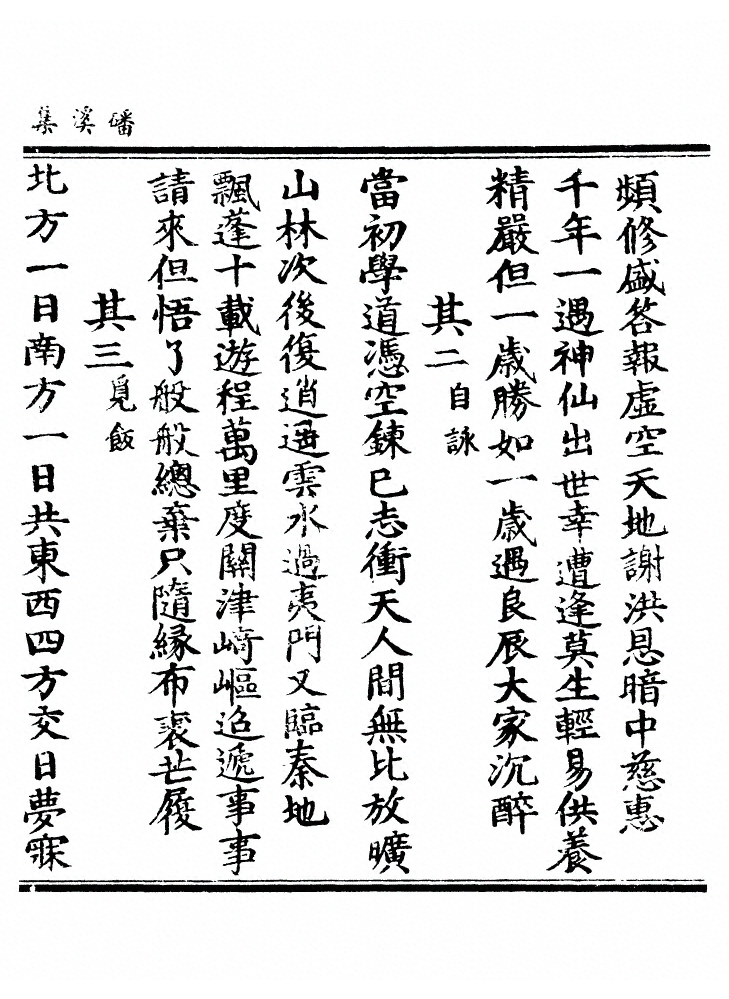 磻溪集
頻修盛答報虛空天地謝洪恩暗中慈惠
千年一遇神仙出世幸遭逢莫生輕易供養
精嚴但一歲勝如一歲遇良辰大家沉醉
其二自詠
當初學道憑空鍊已志衝天人間無比放曠
山林次後復逍遥雲水過夷門又臨秦地
飄蓬十載遊程萬里度關津﨑嶇迢遞事事
請來但悟了般般總棄只隨緣布裘芒履
其三覓飯
北方一日南方一日共東西四方交日夢寐